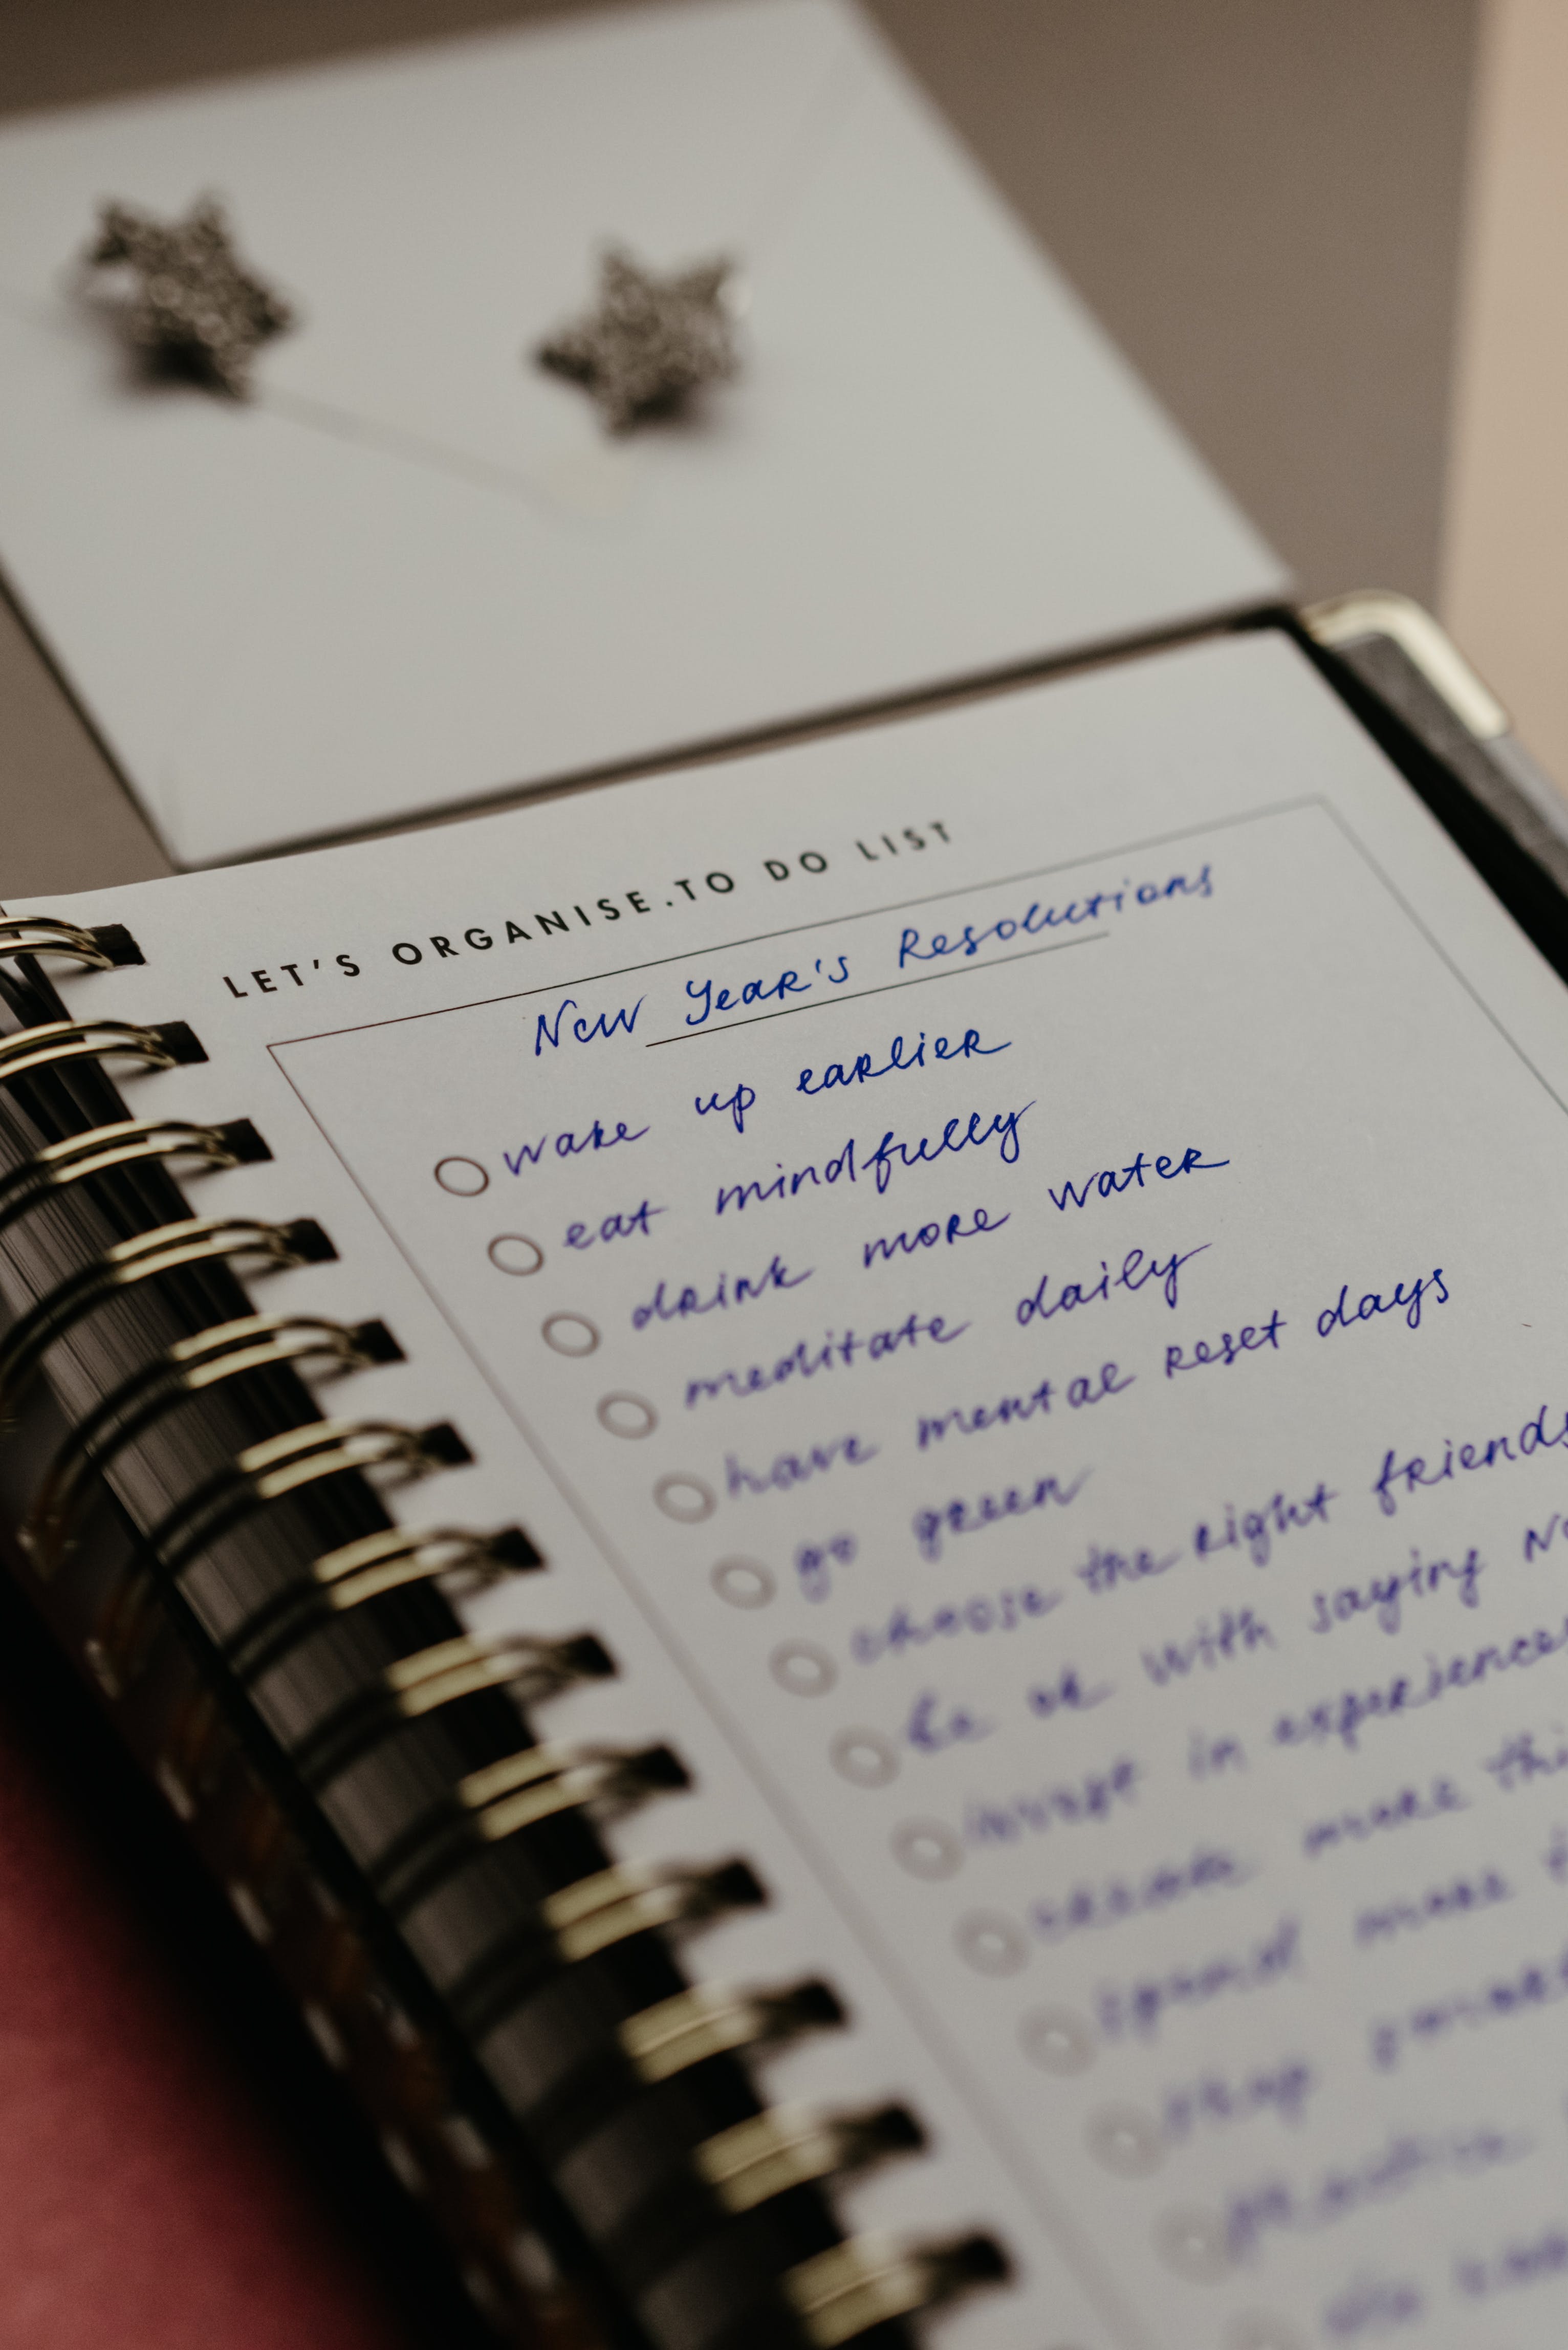 LET'S ORGANISE.TO DO LIST
New Year's Resolutions
wake up earlier
eat mindfully
drink more water
meditate daily
have mental reset days
go green
choose the right friends
be ok with saying
invest in experiences
more
spend more
stop
practice